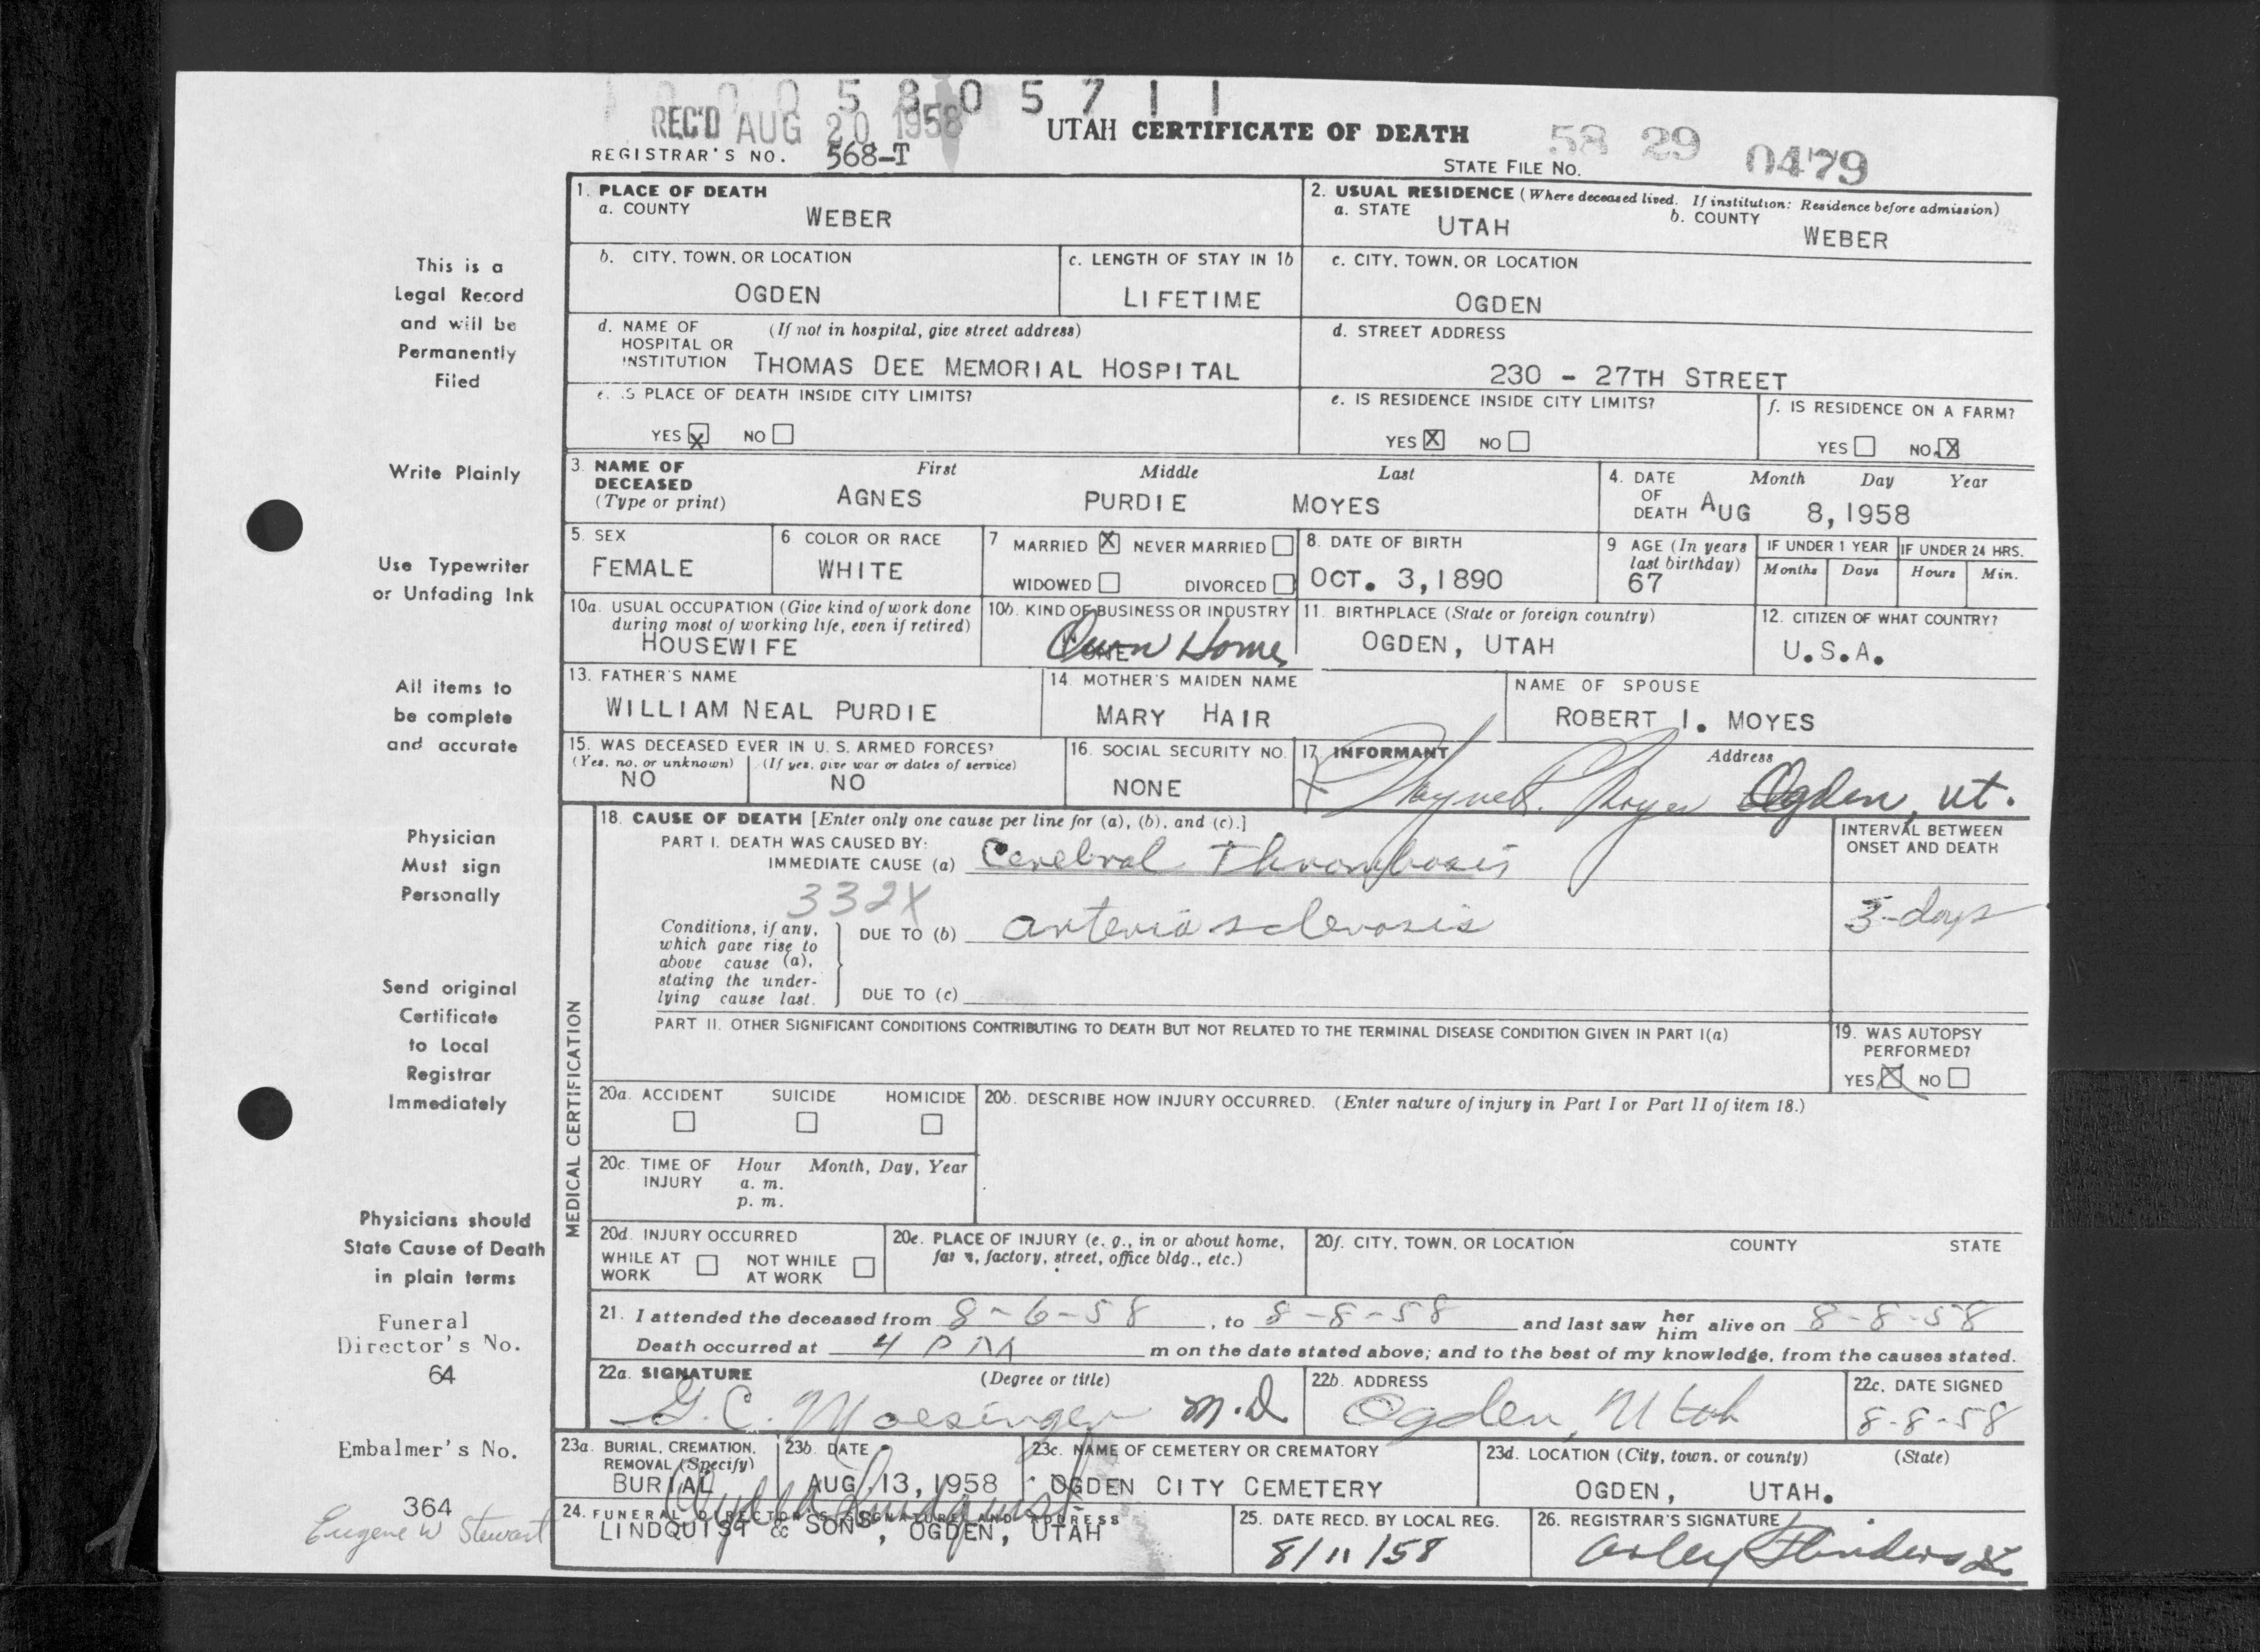 5 8 0 5 7 1 1
REC'D AUG 20 1958
UTAH CERTIFICATE OF DEATH
58 29 0479
REGISTRAR'S NO. 568-T
STATE FILE NO.
This is a
Legal Record
and will be
Permanently
Filed
Write Plainly
Use Typewriter
or Unfading Ink
All items to
be complete
and accurate
Physician
Must sign
Personally
Send original
Certificate
to Local
Registrar
Immediately
Physicians should
State Cause of Death
in plain terms
Funeral
Director's No.
64
Embalmer's No.
364
Eugene W Stewart
1. PLACE OF DEATH
a. COUNTY
WEBER
2. USUAL RESIDENCE (Where deceased lived. If institution: Residence before admission)
a. STATE UTAH b. COUNTY WEBER
b. CITY, TOWN, OR LOCATION
OGDEN
c. LENGTH OF STAY IN 1b
LIFETIME
c. CITY, TOWN, OR LOCATION
OGDEN
d. NAME OF (If not in hospital, give street address)
HOSPITAL OR
INSTITUTION THOMAS DEE MEMORIAL HOSPITAL
d. STREET ADDRESS
230 - 27TH STREET
e. IS PLACE OF DEATH INSIDE CITY LIMITS?
YES X NO
e. IS RESIDENCE INSIDE CITY LIMITS?
YES X NO
f. IS RESIDENCE ON A FARM?
YES NO. X
3. NAME OF DECEASED (Type or print)
First Middle Last
AGNES PURDIE MOYES
4. DATE OF DEATH
Month Day Year
AUG 8, 1958
5. SEX
FEMALE
6 COLOR OR RACE
WHITE
7 MARRIED X NEVER MARRIED
WIDOWED DIVORCED
8. DATE OF BIRTH
OCT. 3, 1890
9 AGE (In years last birthday)
67
IF UNDER 1 YEAR IF UNDER 24 HRS.
Months Days Hours Min.
10a. USUAL OCCUPATION (Give kind of work done
during most of working life, even if retired)
HOUSEWIFE
10b. KIND OF BUSINESS OR INDUSTRY
Own Home
11. BIRTHPLACE (State or foreign country)
OGDEN, UTAH
12. CITIZEN OF WHAT COUNTRY?
U.S.A.
13. FATHER'S NAME
WILLIAM NEAL PURDIE
14. MOTHER'S MAIDEN NAME
MARY HAIR
NAME OF SPOUSE
ROBERT I. MOYES
15. WAS DECEASED EVER IN U. S. ARMED FORCES?
(Yes, no, or unknown) (If yes, give war or dates of service)
NO NO
16. SOCIAL SECURITY NO.
NONE
17. INFORMANT Address
Ogden, Ut.
MEDICAL CERTIFICATION
18. CAUSE OF DEATH [Enter only one cause per line for (a), (b), and (c).]
INTERVAL BETWEEN
ONSET AND DEATH
PART I. DEATH WAS CAUSED BY:
IMMEDIATE CAUSE (a) Cerebral Thrombosis
332X
Conditions, if any,
which gave rise to
above cause (a),
stating the under-
lying cause last.
DUE TO (b) arteriosclerosis
3-days
DUE TO (c)
PART II. OTHER SIGNIFICANT CONDITIONS CONTRIBUTING TO DEATH BUT NOT RELATED TO THE TERMINAL DISEASE CONDITION GIVEN IN PART I(a)
19. WAS AUTOPSY
PERFORMED?
YES X NO
20a. ACCIDENT SUICIDE HOMICIDE
20b. DESCRIBE HOW INJURY OCCURRED. (Enter nature of injury in Part I or Part II of item 18.)
20c. TIME OF Hour Month, Day, Year
INJURY a. m.
p. m.
20d. INJURY OCCURRED
WHILE AT WORK NOT WHILE AT WORK
20e. PLACE OF INJURY (e. g., in or about home,
farm, factory, street, office bldg., etc.)
20f. CITY, TOWN, OR LOCATION COUNTY STATE
21. I attended the deceased from 8-6-58, to 8-8-58 and last saw her him alive on 8-8-58
Death occurred at 4 PM m on the date stated above; and to the best of my knowledge, from the causes stated.
22a. SIGNATURE (Degree or title)
G. C. Moesinger M.D
22b. ADDRESS
Ogden, Utah
22c. DATE SIGNED
8-8-58
23a. BURIAL, CREMATION,
REMOVAL (Specify)
BURIAL
23b. DATE
AUG 13, 1958
23c. NAME OF CEMETERY OR CREMATORY
OGDEN CITY CEMETERY
23d. LOCATION (City, town, or county) (State)
OGDEN, UTAH.
24. FUNERAL DIRECTOR'S SIGNATURE AND ADDRESS
LINDQUIST & SONS, OGDEN, UTAH
25. DATE RECD. BY LOCAL REG.
8/11/58
26. REGISTRAR'S SIGNATURE